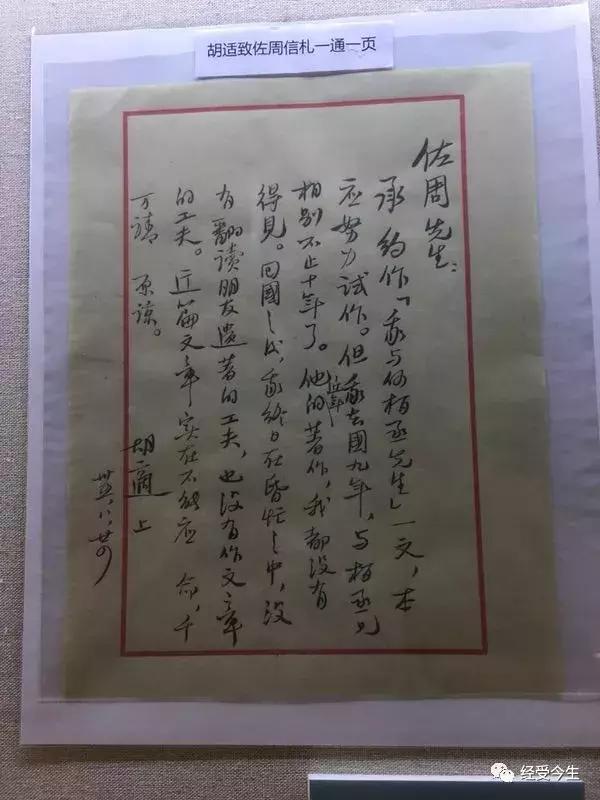 胡适致佐周信札一通一页
佐周先生：
承 约作「我与何柏丞先生」一文，本
应努力试作。但我去國九年，与柏丞兄
相别不止十年了。他的近年著作，我都没有
得見。回國之后，我终日在昏忙之中，没
有翻读朋友遗著的工夫，也没有作文章
的工夫。这篇文章实在不能应 命，千
万请 原谅。
胡適 上
卅五，八，廿四
经受今生